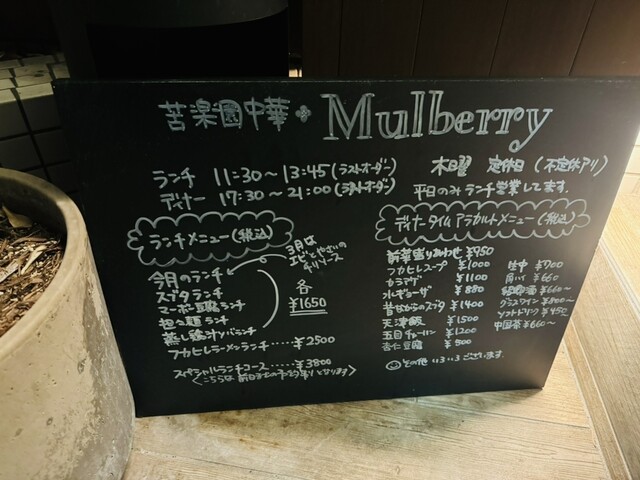 苦楽園中華 Mulberry
ランチ 11:30～13:45 (ラストオーダー)
ディナー 17:30～21:00 (ラストオーダー)
木曜 定休日 (不定休アリ)
平日のみランチ営業してます。
ランチメニュー(税込)
3月は
エビとやさいの
チリソース
今月のランチ
スブタランチ
マーボー豆腐ランチ
担々麺ランチ
蒸し鶏ネギソバランチ
各
¥1650
フカヒレラーメンランチ・・・・・¥2500
スペシャルランチコース・・・・・¥3800
<こちらは前日までの予約制となります>
ディナータイムアラカルトメニュー(税込)
前菜盛りあわせ ¥950
フカヒレスープ ¥1000
カラアゲ ¥1100
水ギョーザ ¥880
昔ながらのスブタ ¥1400
天津飯 ¥1500
五目チャーハン ¥1200
杏仁豆腐 ¥500
生中 ¥700
角ハイ ¥660
紹興酒 ¥660～
グラスワイン ¥800～
ソフトドリンク ¥450～
中国茶 ¥660～
その他 いろいろございます。